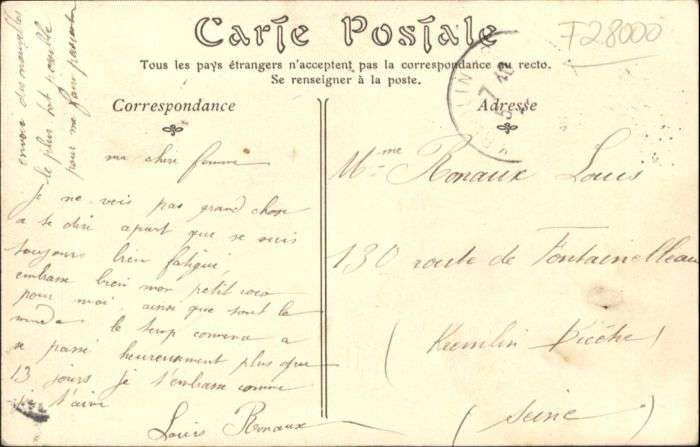 Carte Postale
Tous les pays étrangers n'acceptent pas la correspondance au recto.
Se renseigner à la poste.
Correspondance
Adresse
F28000
envoie des nouvelles
le plus tôt possible
pour me faire
ma chère femme
Je ne vois pas grand chose
a te dire apart que je suis
toujours bien fatigué
embrasse bien mon petit coco
pour moi ainsi que tout le
monde le temp commence a
se passé heureusement plus que
13 jours je t'embrasse comme
je t'aime
Louis Ronaux
Mme Ronaux Louis
130 route de Fontainebleau
(Kremlin Bicêtre)
(Seine)